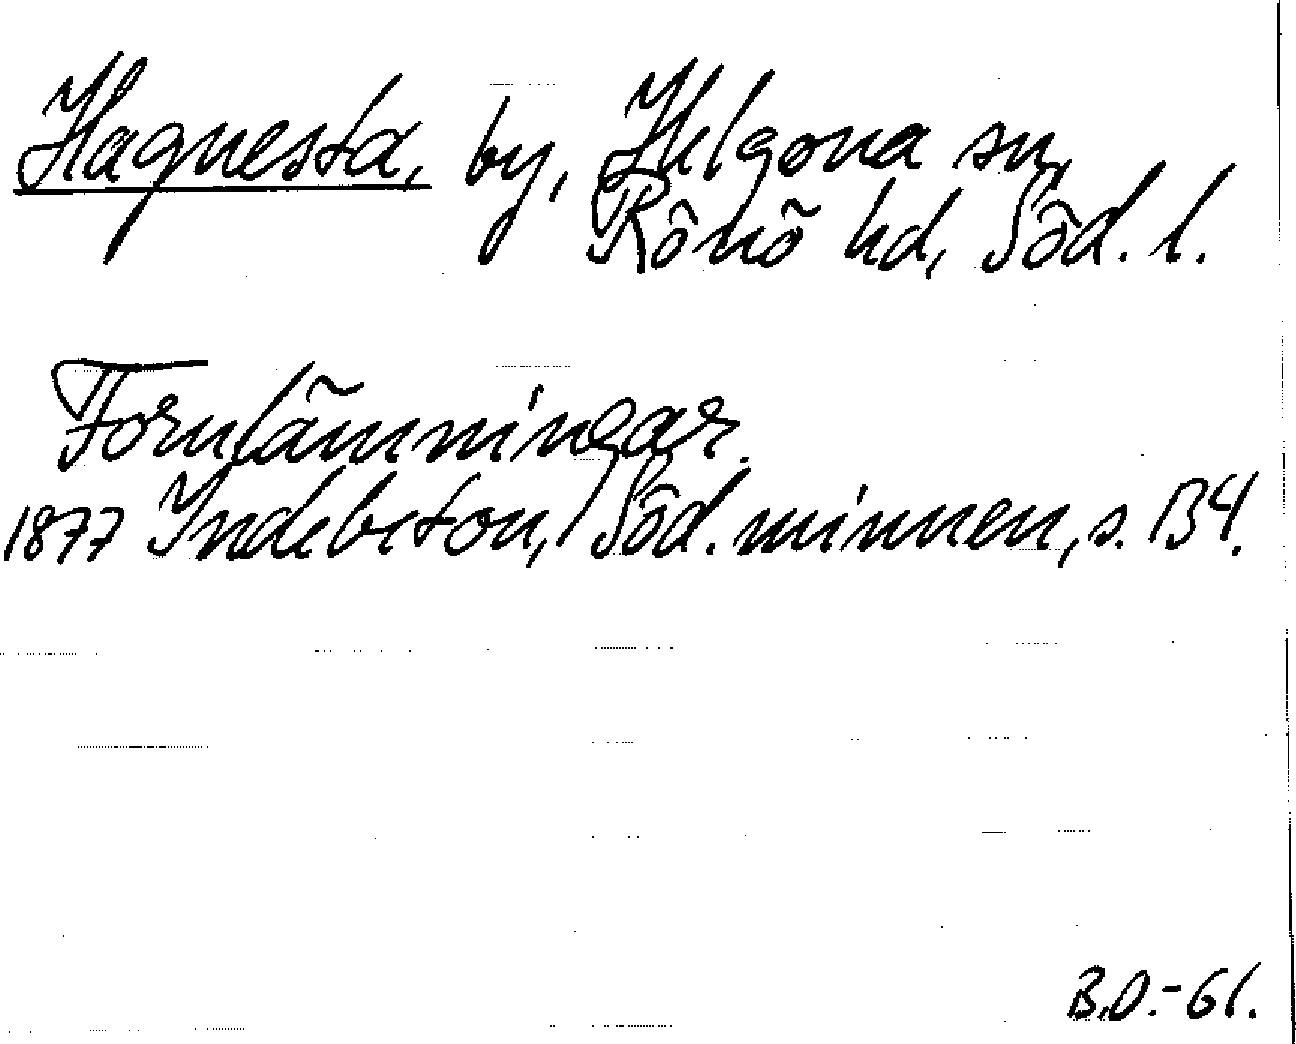 Hagnesta, by, Helgona sn,
Rönö hd, Söd. l.
Fornlämningar.
1877 Indebetou, Söd. minnen, s. 134.
B.O.-61.